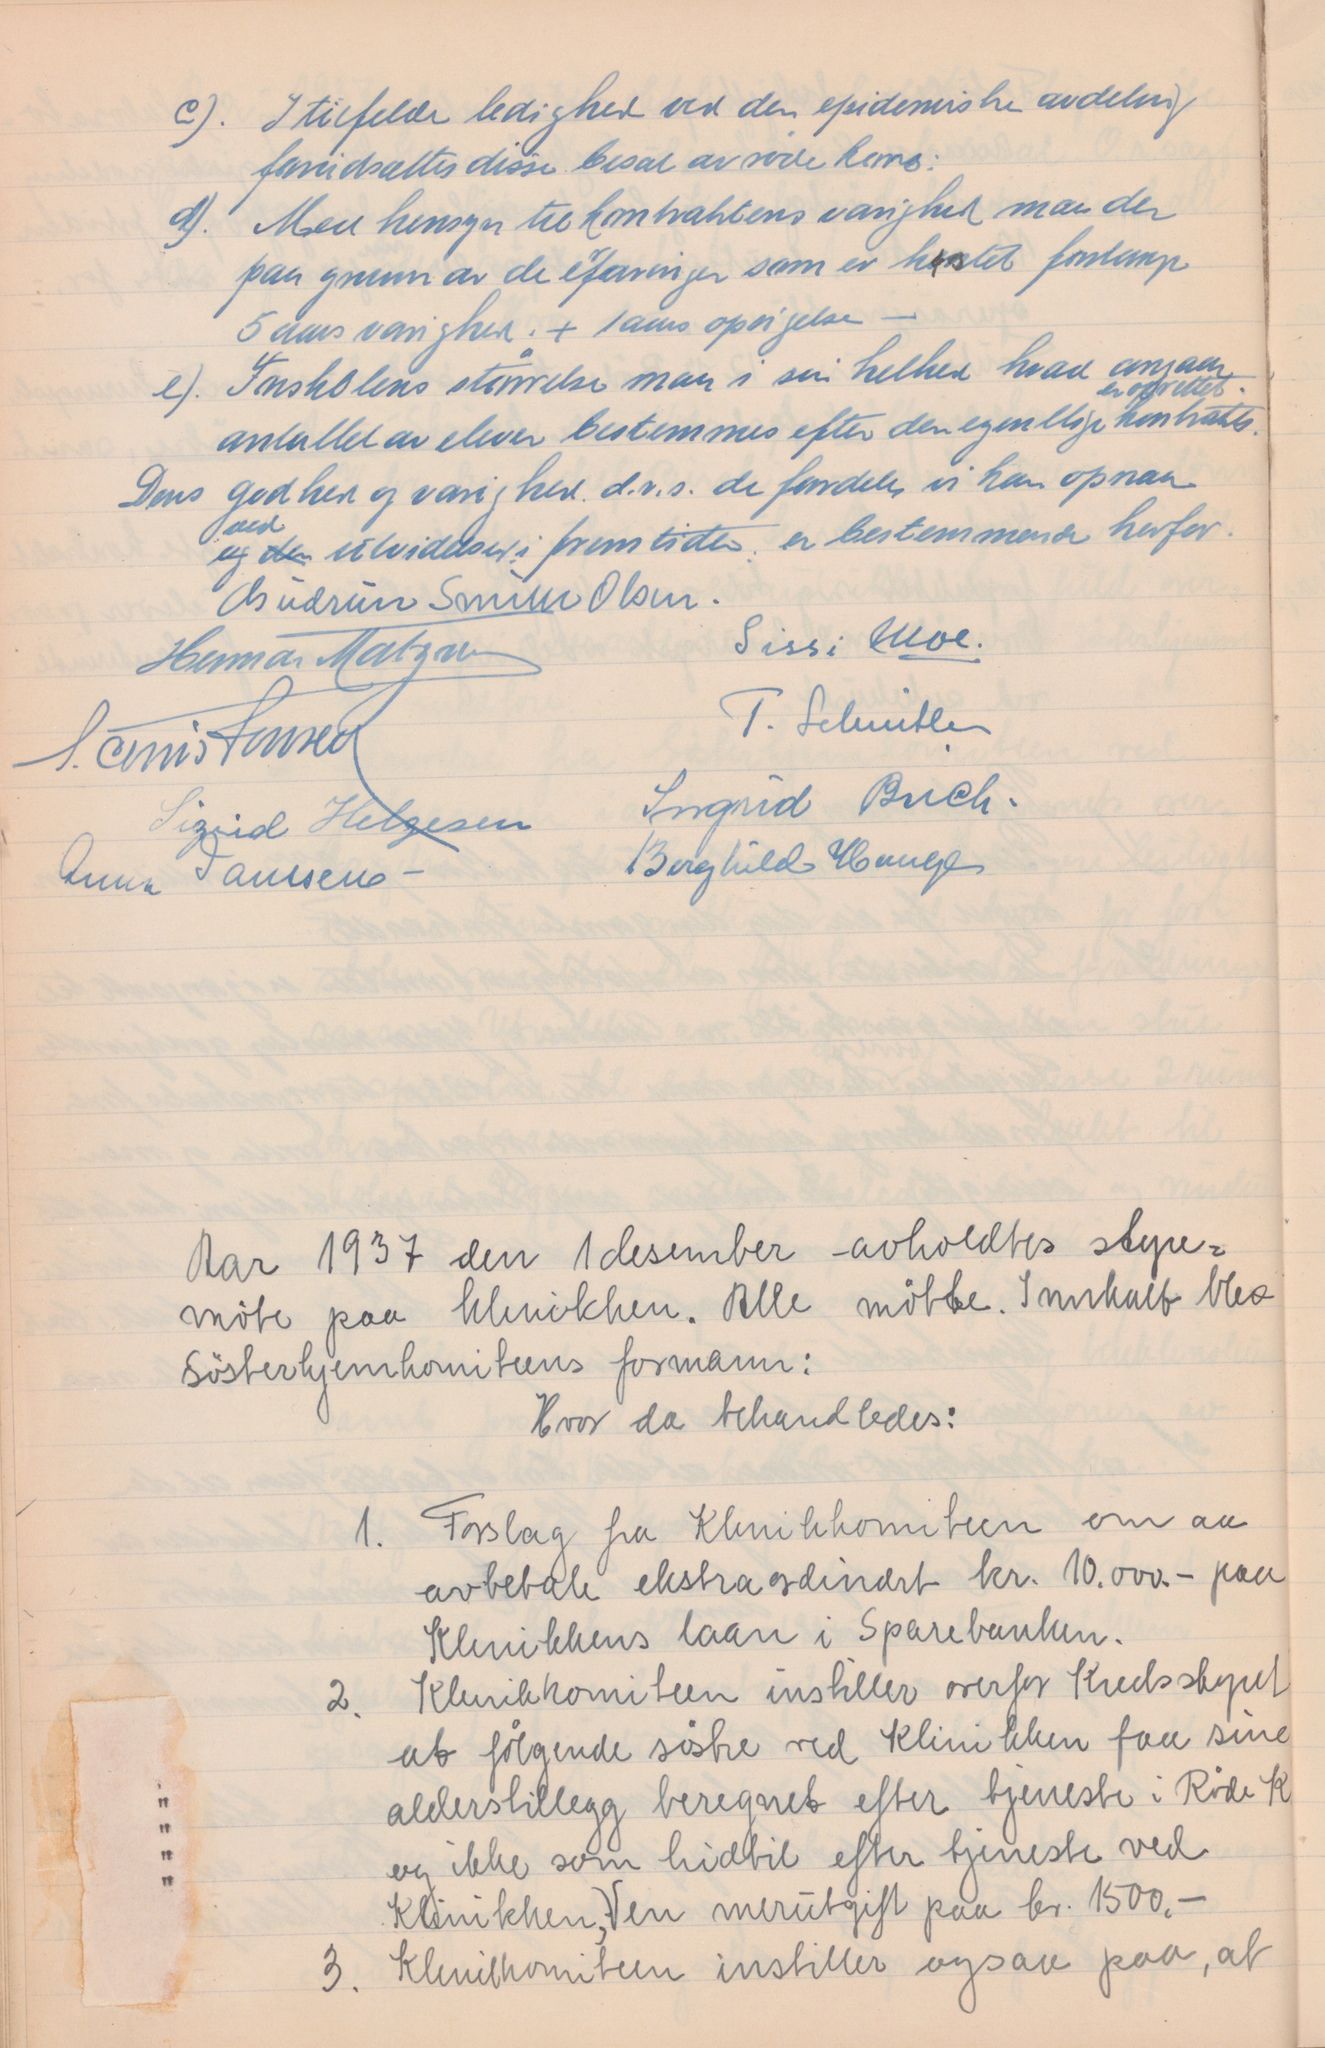 c). I tilfelde ledighed ved den epidemiske avdeling
forudsættes disse besat av røde kors:
d). Med hensyn til kontraktens varighed maa der
paa grunn av de erfaringer som er høstet forlange
5 aars varighed. + 1 aars opsigelse —
e). Søsterskolens størrelse maa i sin helhed hvad angaar
er oprettet.
antallet av elever bestemmes efter den egentlige kontrakts.
Dens godhed og varighed. d.v.s. de fordeler vi kan opnaa
ved
og den utvidelser i fremtiden. er bestemmende herfor.
Gudrun Smith Olsen.
Henna Matzow
Sissi Moe.
T. Schnitler
Sigrid Helgesen
Ingrid Brich.
Anna Janssen —
Borghild Hauge
Aar 1937 den 1 desember avholdtes styre=
möte paa klinikken. Alle mötte. Innkalt blev
Sösterhjemkomiteens formann:
Hvor da behandledes:
1. Forslag fra Klinikkomiteen om aa
avbetale ekstraordinært kr. 10.000.- paa
Klinikkens laan i Sparebanken.
2. Klinikkomiteen instiller overfor Kredsstyret
at fölgende söstre ved Klinikken faa sine
alderstillegg beregnet efter tjeneste i Röde K
og ikke som hidtil efter tjeneste ved
Klinikken, en merutgift paa kr. 1500,-
3. Klinikkomiteen instiller ogsaa paa, at